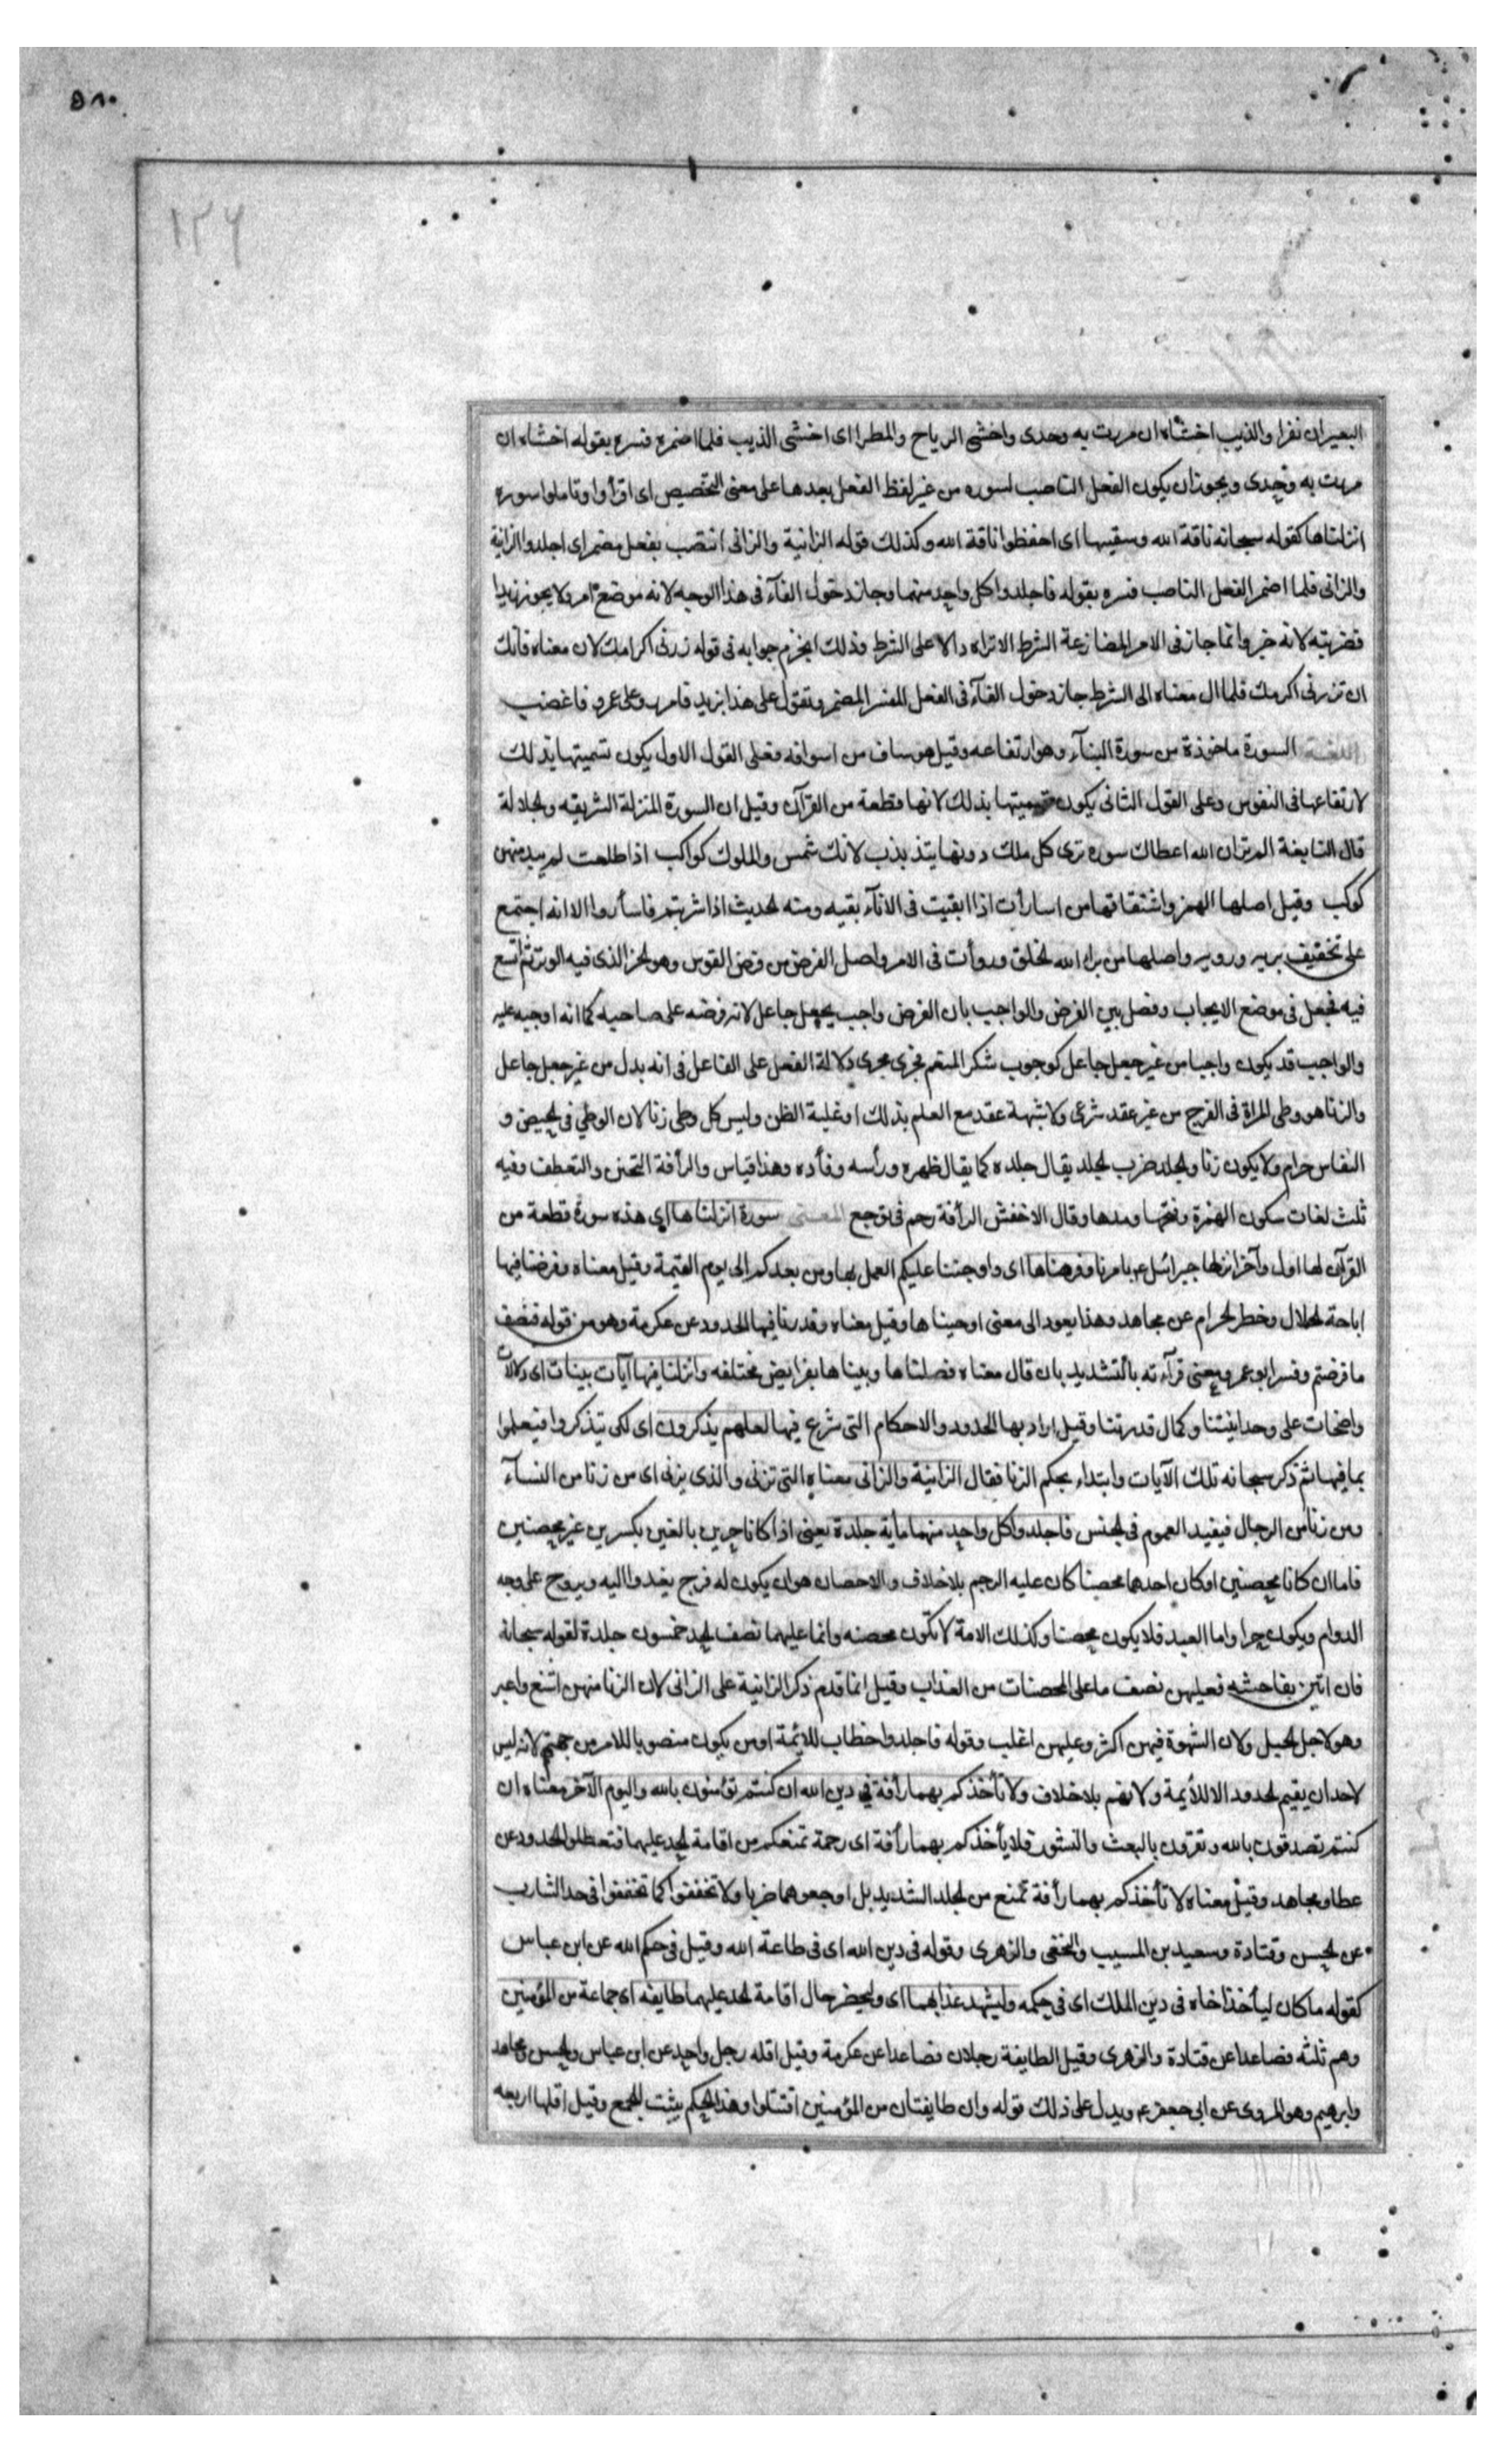 ٥٨٠
١٢٦
البعير ان نفرا والذيب اخشاه ان مررت به وحدى واخشى الرياح والمطرا اى اخشى الذيب فلما اضمره فسره بقوله اخشاه ان
مررت به وحدى ويجوز ان يكون الفعل الناصب لسوره من غير لفظ الفعل بعدها على معنى التخصيص اى اقرأوا وتاملوا سورة
انزلناها كقوله سبحانه ناقة الله وسقيها اى احفظوا ناقة الله وكذلك قوله الزانية والزانى انتصب بفعل مضمر اى اجلدوا الزانية
والزانى فلما اضمر الفعل الناصب فسره بقوله فاجلدوا كل واحد منهما وجاز دخول الفآء فى هذا الوجه لانه موضع امر ولا يجوز زيدا
فضربته لانه خبر وانما جاز فى الامر لمضارعة الشرط الا تراه دالا على الشرط وذلك انجزم جوابه فى قوله زرنى اكرمك لان معناه فانك
ان تزرنى اكرمك فلما ال معناه الى الشرط جاز دخول الفآء فى الفعل المفسر المضمر وتقول على هذا بزيد فامرر وعلى عمرو فاغضب
اللغة السورة ماخوذة من سورة البنآء وهو ارتفاعه وقيل هو ساف من اسوافه فعلى القول الاول يكون تسميتها بذلك
لارتفاعها فى النفوس وعلى القول الثانى يكون تسميتها بذلك لانها قطعة من القرآن وقيل ان السورة المنزلة الشريفه ولجلالة
قال النابغة الم تر ان الله اعطاك سوره ترى كل ملك دونها يتذبذب لانك شمس والملوك كواكب اذا طلعت لم يبد منهن
كوكب وقيل اصلها الهمز واشتقاقها من اسارأت اذا ابقيت فى الانآء بقيه ومنه لحديث اذا شربتم فاسأروا الا انه اجتمع
على تخفيف بريه ورويه واصلها من برا الله لخلق وروأت فى الامر واصل الفرض من فرض القوس وهو لحز الذى فيه الوتر ثم اتسع
فيه فجعل فى موضع الايجاب وفصل بين الفرض والواجب بان الفرض واجب بجعل جاعل لانه فرضه على صاحبه كما انه اوجبه عليه
والواجب قد يكون واجبا من غير جعل جاعل كوجوب شكر المنعم فجرى مجرى دلالة الفعل على الفاعل فى انه يدل من غير جعل جاعل
والزنا هو وطى المراة فى الفرج من غير عقد شرعى ولا شبهة عقد مع العلم بذلك او غلبة الظن وليس كل وطى زنا لان الوطي فى لحيض و
النفاس حرام ولا يكون زنا ولجلد ضرب لجلد يقال جلده كما يقال ظهره ورأسه وفأده وهذا قياس والرأفة التحنن والتعطف وفيه
ثلث لغات سكون الهمزة وفتحها ومدها وقال الاخفش الرأفة رحم فى توجع المعنى سورة انزلناها اى هذه سورة قطعة من
القرآن لها اول وآخر انزلها جبرائيل ع بامرنا وفرضناها اى واوجبنا عليكم العمل بها ومن بعدكم الى يوم القيمة وقيل معناه وفرضنا فيها
اباحة لحلال وحظر لحرام عن مجاهد وهذا يعود الى معنى اوحيناها وقيل معناه وقدرنا فيها لحدود عن عكرمة وهو من قوله فنصف
ما فرضتم وفسر ابو عمرو معنى قرآءته بالتشديد بان قال معناه فصلناها وبيناها بفرايض مختلفه وانزلنا فيها آيات بينات اى دلالات
واضحات على وحدانيتنا وكمال قدرتنا وقيل اراد بها لحدود والاحكام التى شرع فيها لعلهم يذكرون اى لكى يتذكروا فيعلموا
بما فيها ثم ذكر سبحانه تلك الآيات وابتداء بحكم الزنا فقال الزانية والزانى معناه التى تزنى والذى يزنى اى من زنا من النسآء
ومن زنا من الرجال فيفيد العموم فى لجنس فاجلدوا كل واحد منهما مأية جلدة يعنى اذا كانا حرين بالغين بكرين غير محصنين
فاما ان كانا محصنين او كان احدهما محصنا كان عليه الرجم بلا خلاف والاحصان هو ان يكون له فرج يغدوا اليه ويروح على وجه
الدوام ويكون حرا واما العبد فلا يكون محصنا وكذلك الامة لا تكون محصنه وانما عليهما نصف لحد خمسون جلدة لقوله سبحانه
فان اتين بفاحشه فعليهن نصف ما على المحصنات من العذاب وقيل انما قدم ذكر الزانية على الزانى لان الزنا منهن اشنع واعير
وهو لاجل لحبل ولان الشهوة فيهن اكثر وعليهن اغلب وقوله فاجلدوا خطاب للائمة او من يكون منصوبا للامر من جهتهم لانه ليس
لاحد ان يقيم لحدود الا للأيمة ولاتهم بلا خلاف ولا تأخذكم بهما رأفة فى دين الله ان كنتم تؤمنون بالله واليوم الآخر معناه ان
كنتم تصدقون بالله وتقرون بالبعث والنشور فلا يأخذكم بهما رأفة اى رحمة تمنعكم من اقامة لحد عليهما فتعطلوا لحدود عن
عطا ومجاهد وقيل معناه لا تأخذكم بهما رأفة تمنع من لجلد الشديد بل اوجعوهما ضربا ولا تخففوا كما تخففوا فى حد الشارب
عن لحسن وقتادة وسعيد بن المسيب والنخعى والزهرى وقوله فى دين الله اى فى طاعة الله وقيل فى حكم الله عن ابن عباس
كقوله ما كان ليأخذ اخاه فى دين الملك اى فى حكمه وليشهد عذابهما اى وليحضر حال اقامة لحد عليهما طايفه اى جماعة من المؤمنين
وهم ثلثه فصاعدا عن قتادة والزهرى وقيل الطايفة رجلان فصاعدا عن عكرمة وقيل اقله رجل واحد عن ابن عباس ولحسن ومجاهد
وابرهيم وهو المروى عن ابى جعفر ع ويدل على ذلك قوله وان طايفتان من المؤمنين اقتتلوا وهذا لحكم يثبت للجمع وقيل اقلها اربعه